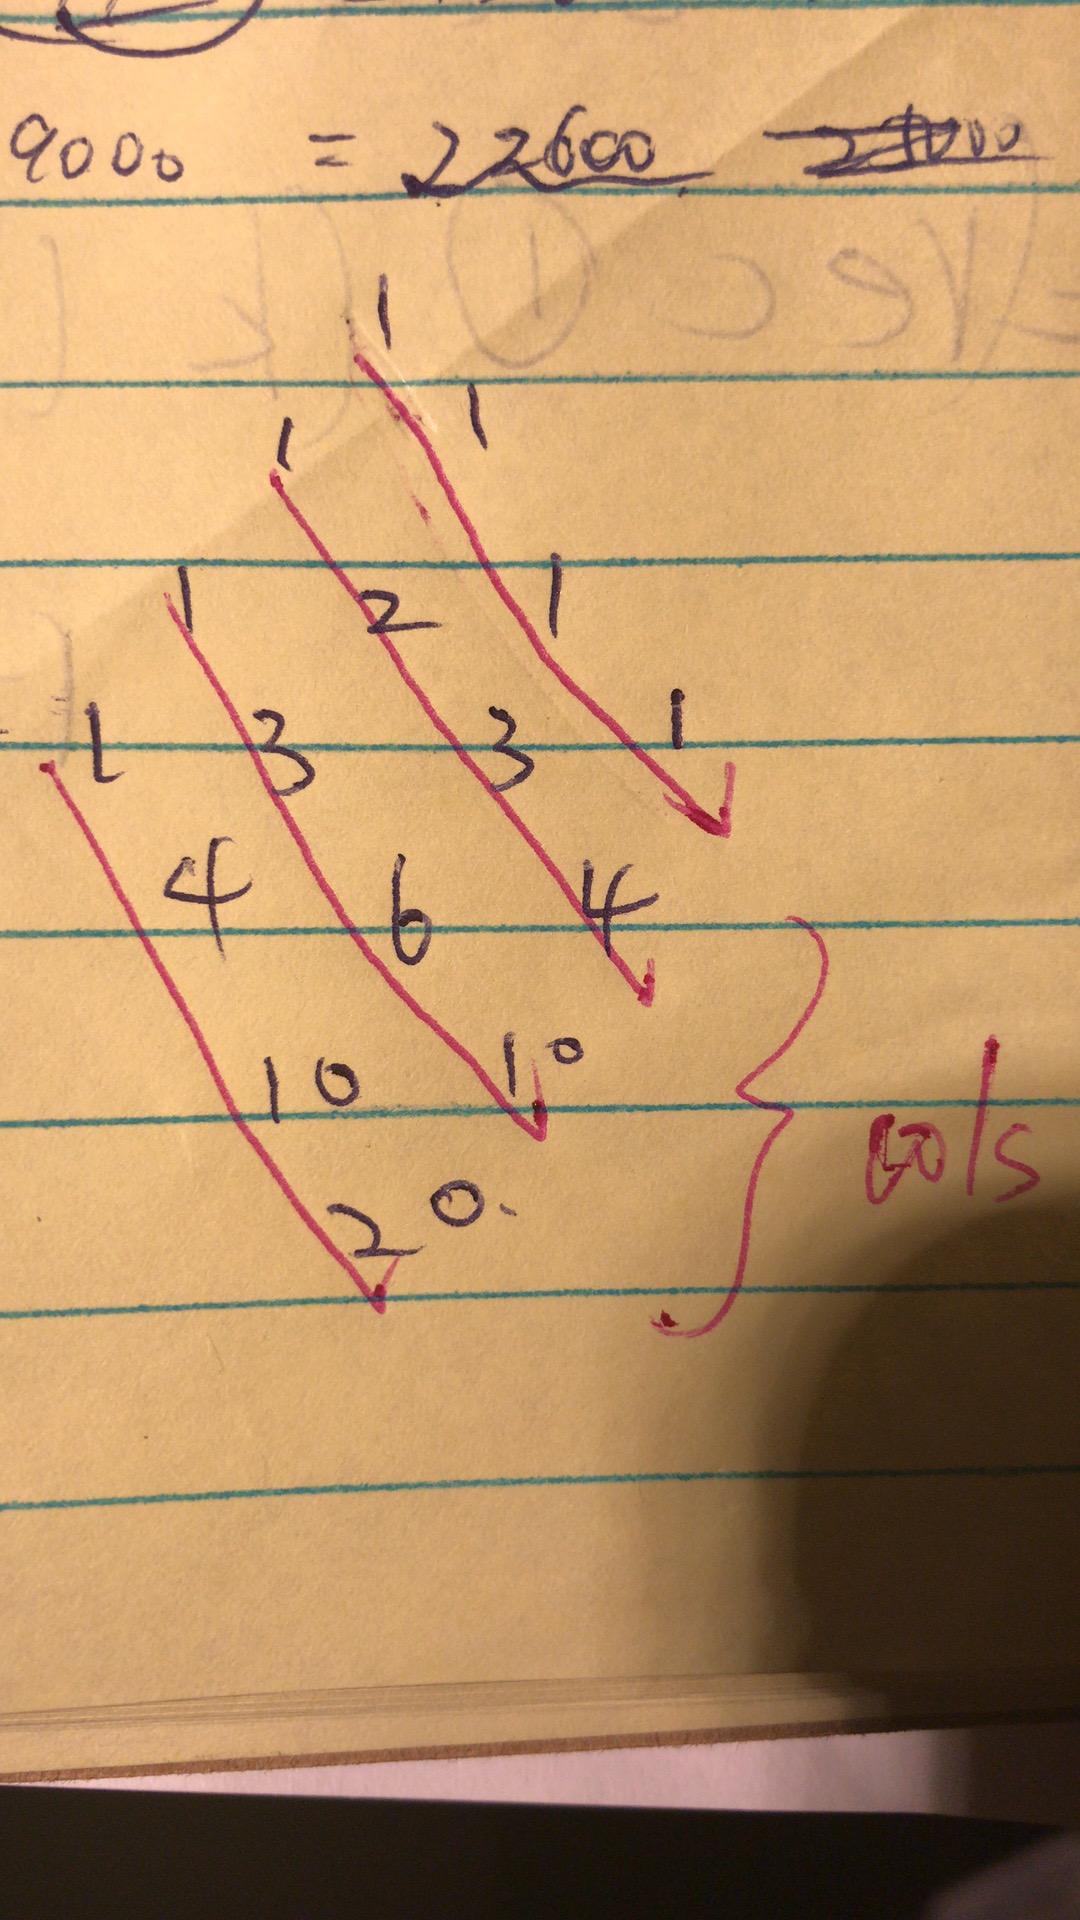 9000 = 22600
1
1 1
1 2 1
1 3 3 1
4 6 4
10 10
20.
cols